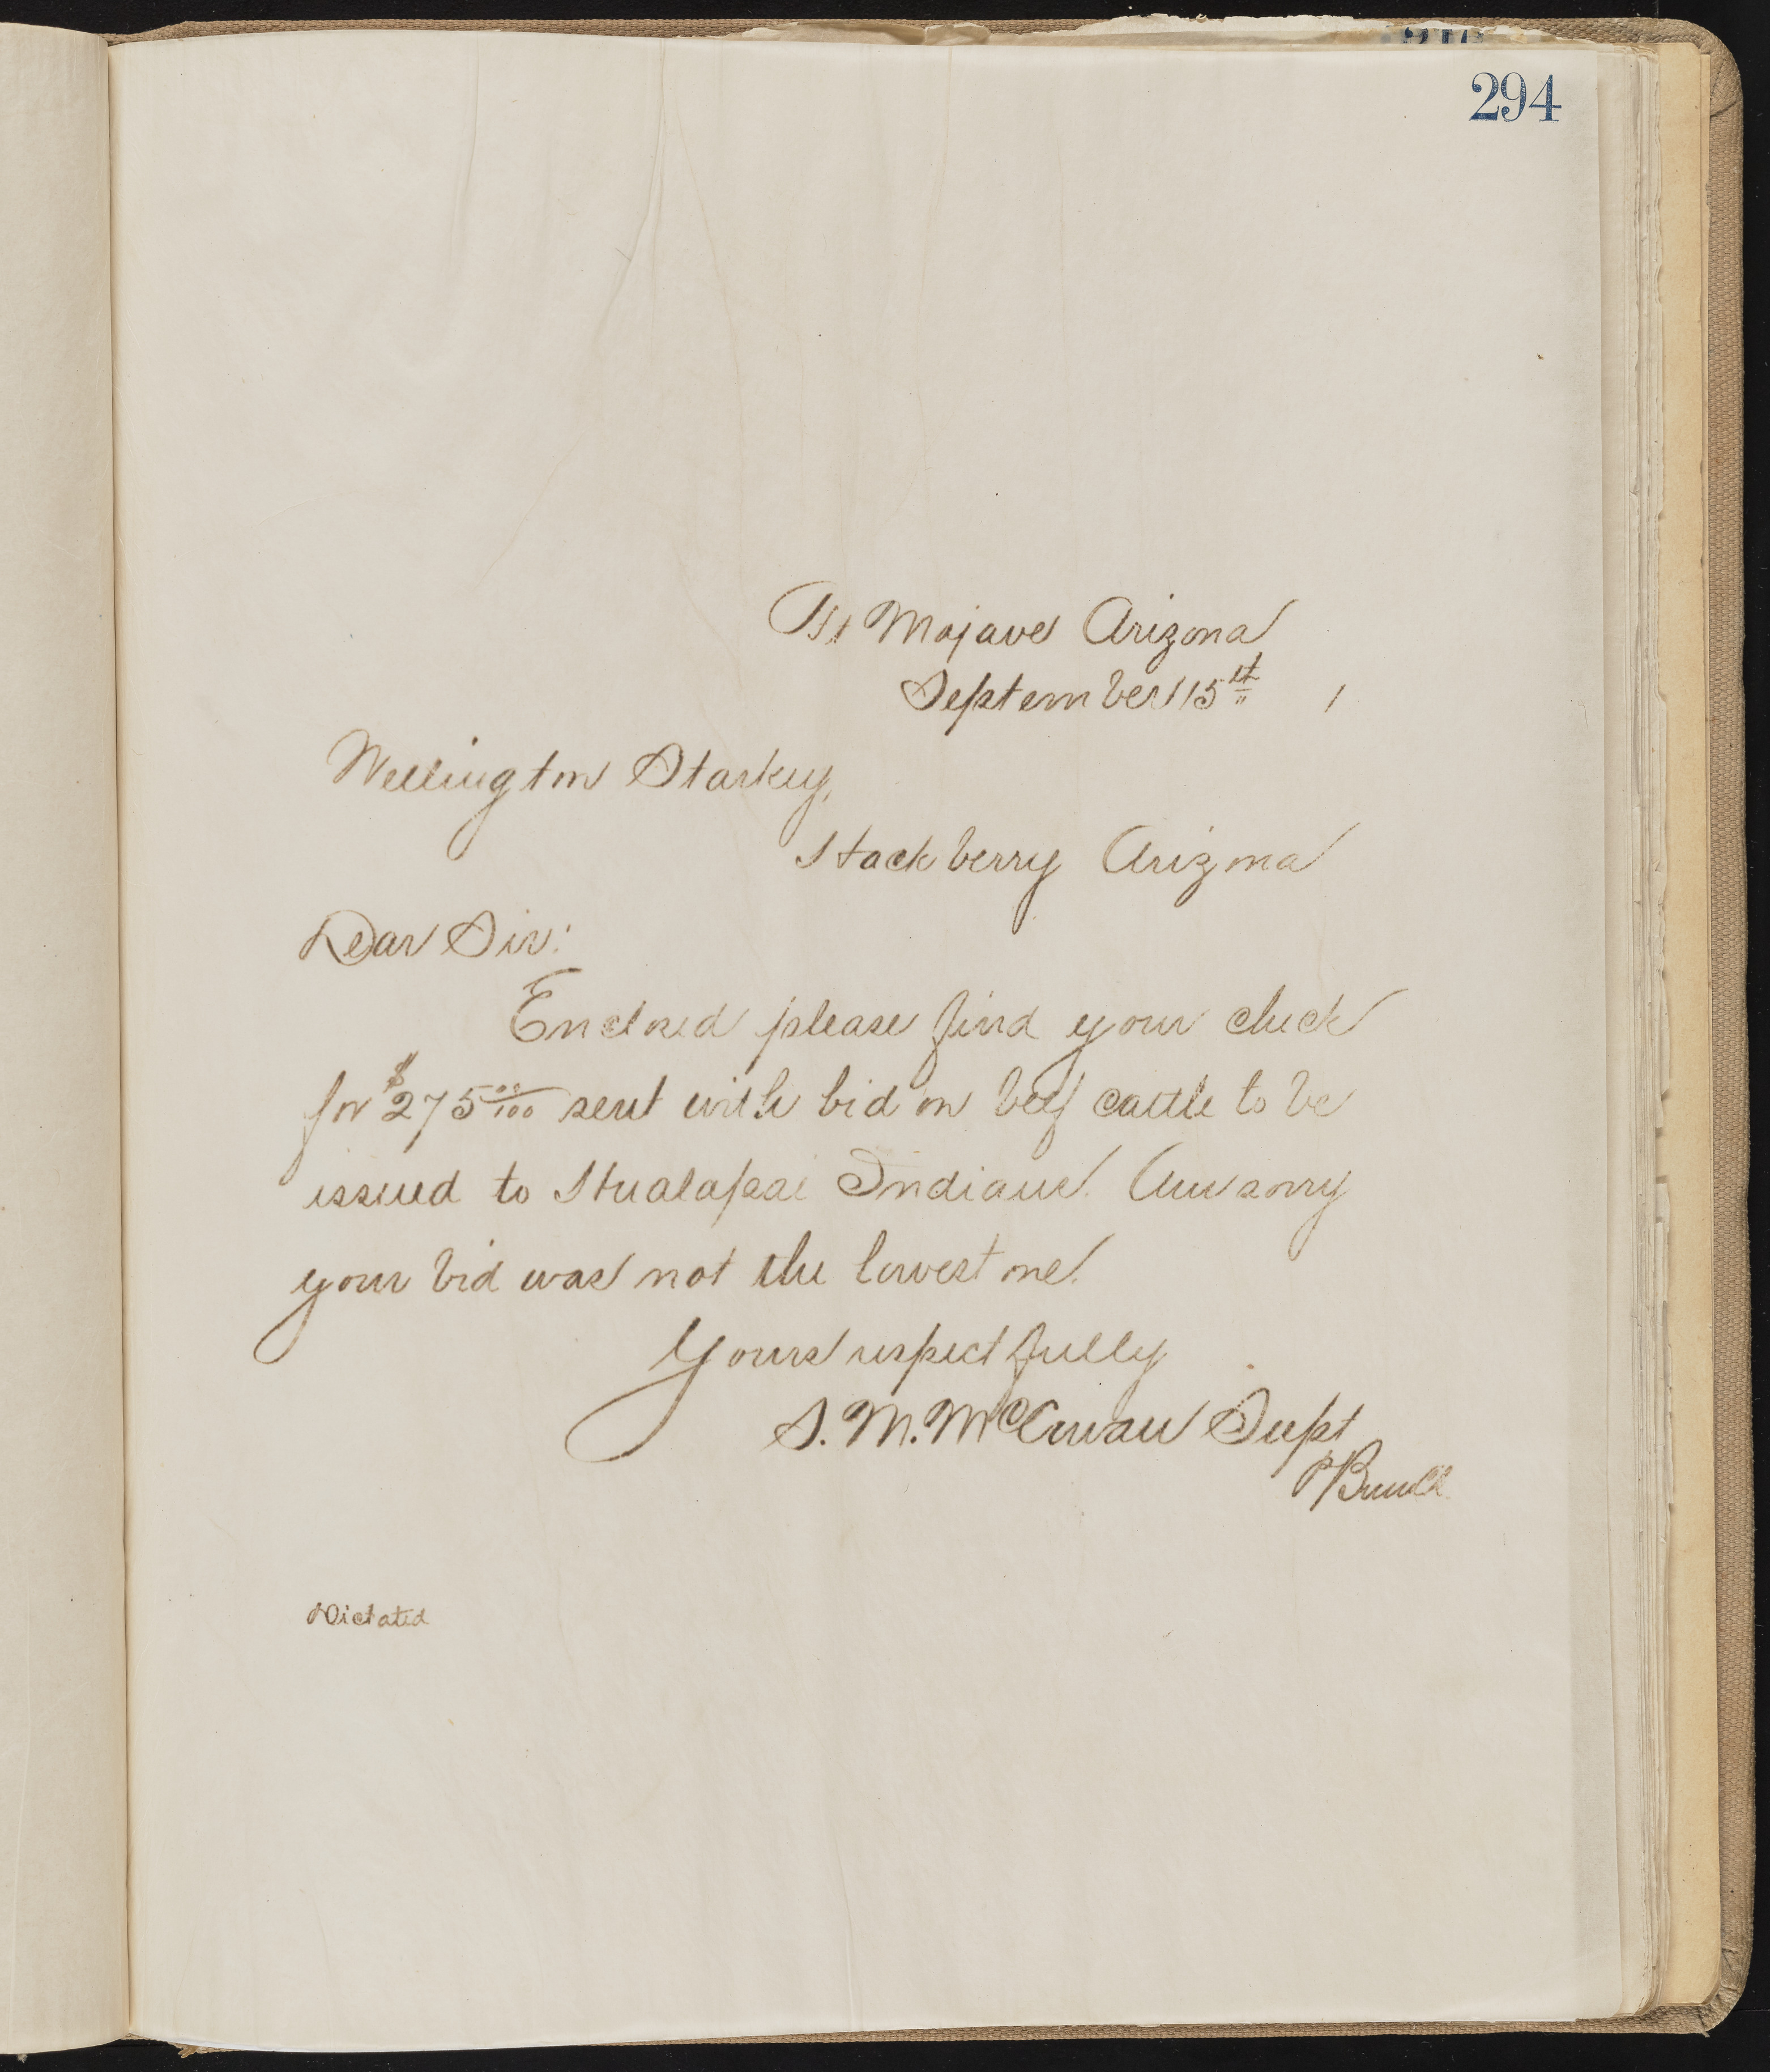 294
Ft Mojave Arizona
September 15th /
Wellington Starkey,
Hackberry Arizona
Dear Sir:
Enclosed please find your check
for $275 00/100 sent with bid on beef cattle to be
issued to Hualapai Indians. Am sorry
your bid was not the lowest one.
Yours respectfully
S. M. McCowan Supt
Dictated